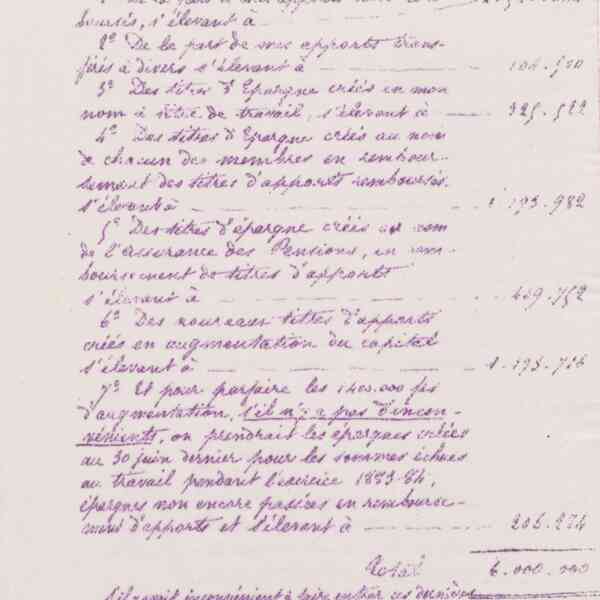 boursés, s'élevant à
2º De la part de mes apports trans-
férés à divers s'élevant à
3º Des titres d'Epargne créés en mon
nom à titre de travail, s'élevant à 325.582
4º Des titres d'Epargne créés au nom
de chacun des membres en rembour-
sement des titres d'apports remboursés.
s'élevant à 193.982
5º Des titres d'épargne créés au nom
de l'Assurance des Pensions, en rem-
boursement de titres d'apports
s'élevant à 409.752
6º Des nouveaux titres d'apports
créés en augmentation du capital
s'élevant à
7º Et pour parfaire les 1400.000 frs
d'augmentation, s'il n'y a pas d'incon-
vénients, on prendrait les épargnes créées
au 30 juin dernier pour les sommes échues
au travail pendant l'exercice 1883-84,
épargnes non encore passées en rembourse-
ment d'apports et s'élevant à 206.274
Total 6.000.000
s'il y avait inconvénient à faire entrer ces dernières